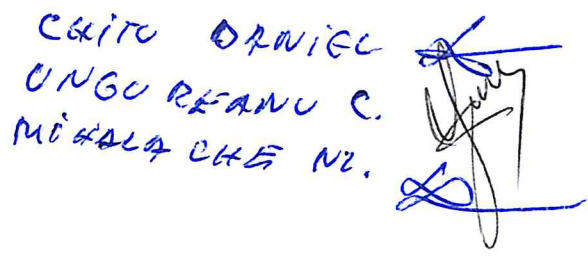 CHITU DANIEL
UNGUREANU C.
MIHALACHE NI.